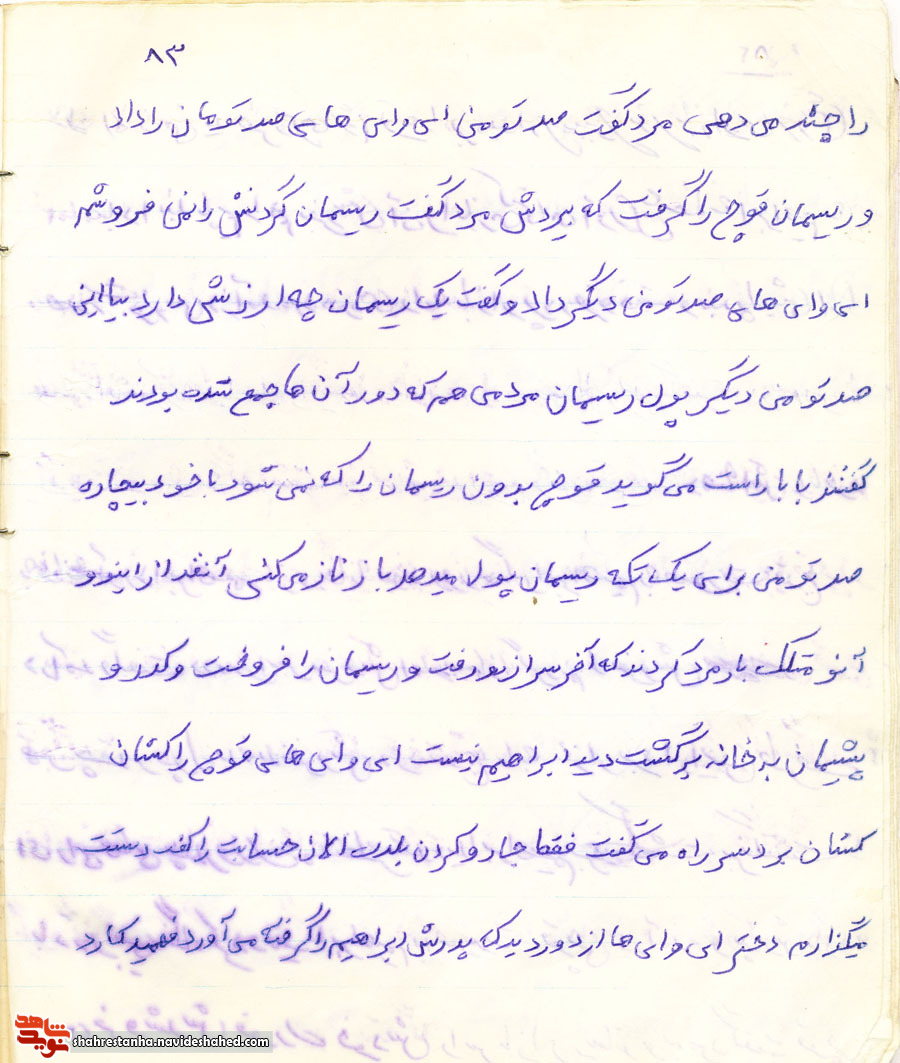 ۸۳
را چند می دهی مرد گفت صد تومنی ای وای های صد تومان را داد
و ریسمان قوچ را گرفت که ببردش مرد گفت ریسمان گردنش را نمی فروشم
ای وای های صد تومنی دیگر داد و گفت یک ریسمان چه ارزشی دارد بیا این
صد تومنی دیگر پول ریسمان مردمی هم که دور آن ها جمع شده بودند
گفتند بابا راست می گوید قوچ بدون ریسمان را که نمی شود با خود بیچاره
صد تومنی برای یک تکه ریسمان پول میدهد باز ناز می کنی آنقدر از اینو و
آنو متلک بار مرد کردند که آخر سر از رو رفت و ریسمان را فروخت و کدر و
پشیمان به خانه برگشت دید ابراهیم نیست ای وای های قوچ را کشان
کشان برد سر راه می گفت فقط جادو کردن بلدی الان حسابت را کف دستت
میگذارم دختر ای وای ها از دور دید که پدرش ابراهیم را گرفته می آورد فهمید کارد
نوید شاهد
shahrestanha.navideshahed.com